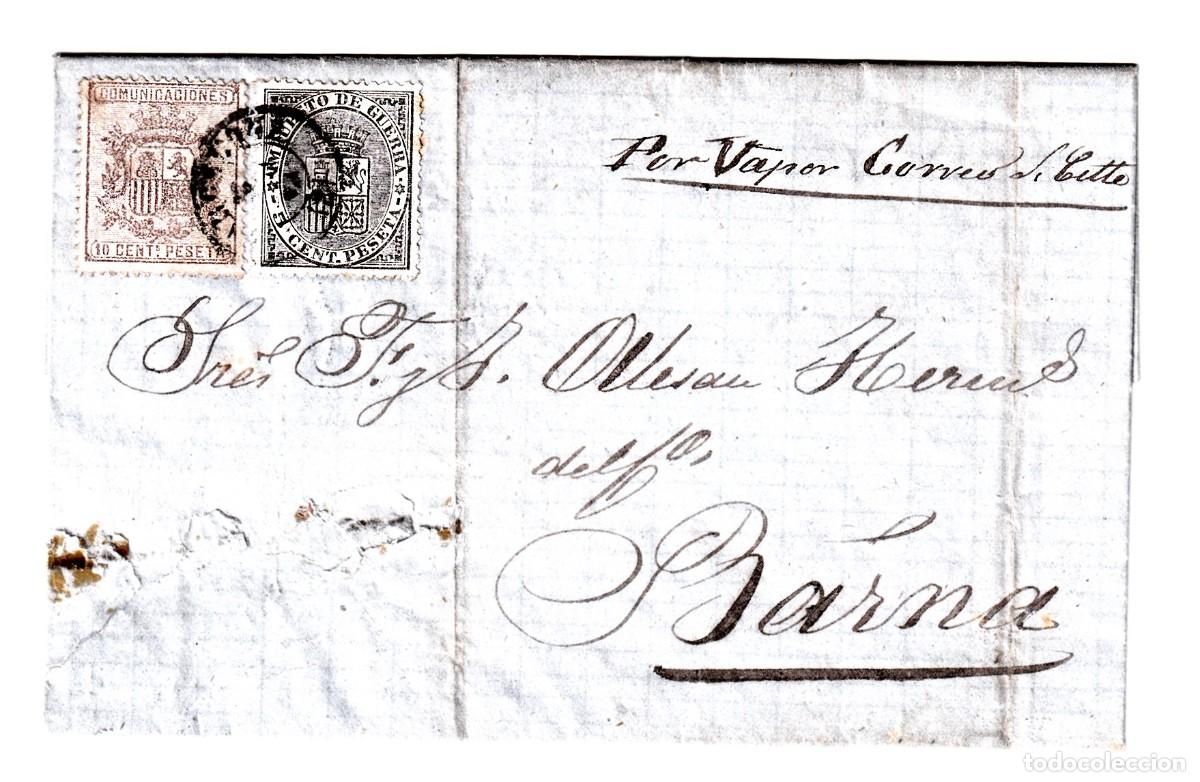 COMUNICACIONES
10 CENT. PESETA
IMPUESTO DE GUERRA
5 CENT. PESETA
Por Vapor Correo de Cette
Sres F. y J. Ollesau Herm
Barna
todocoleccion